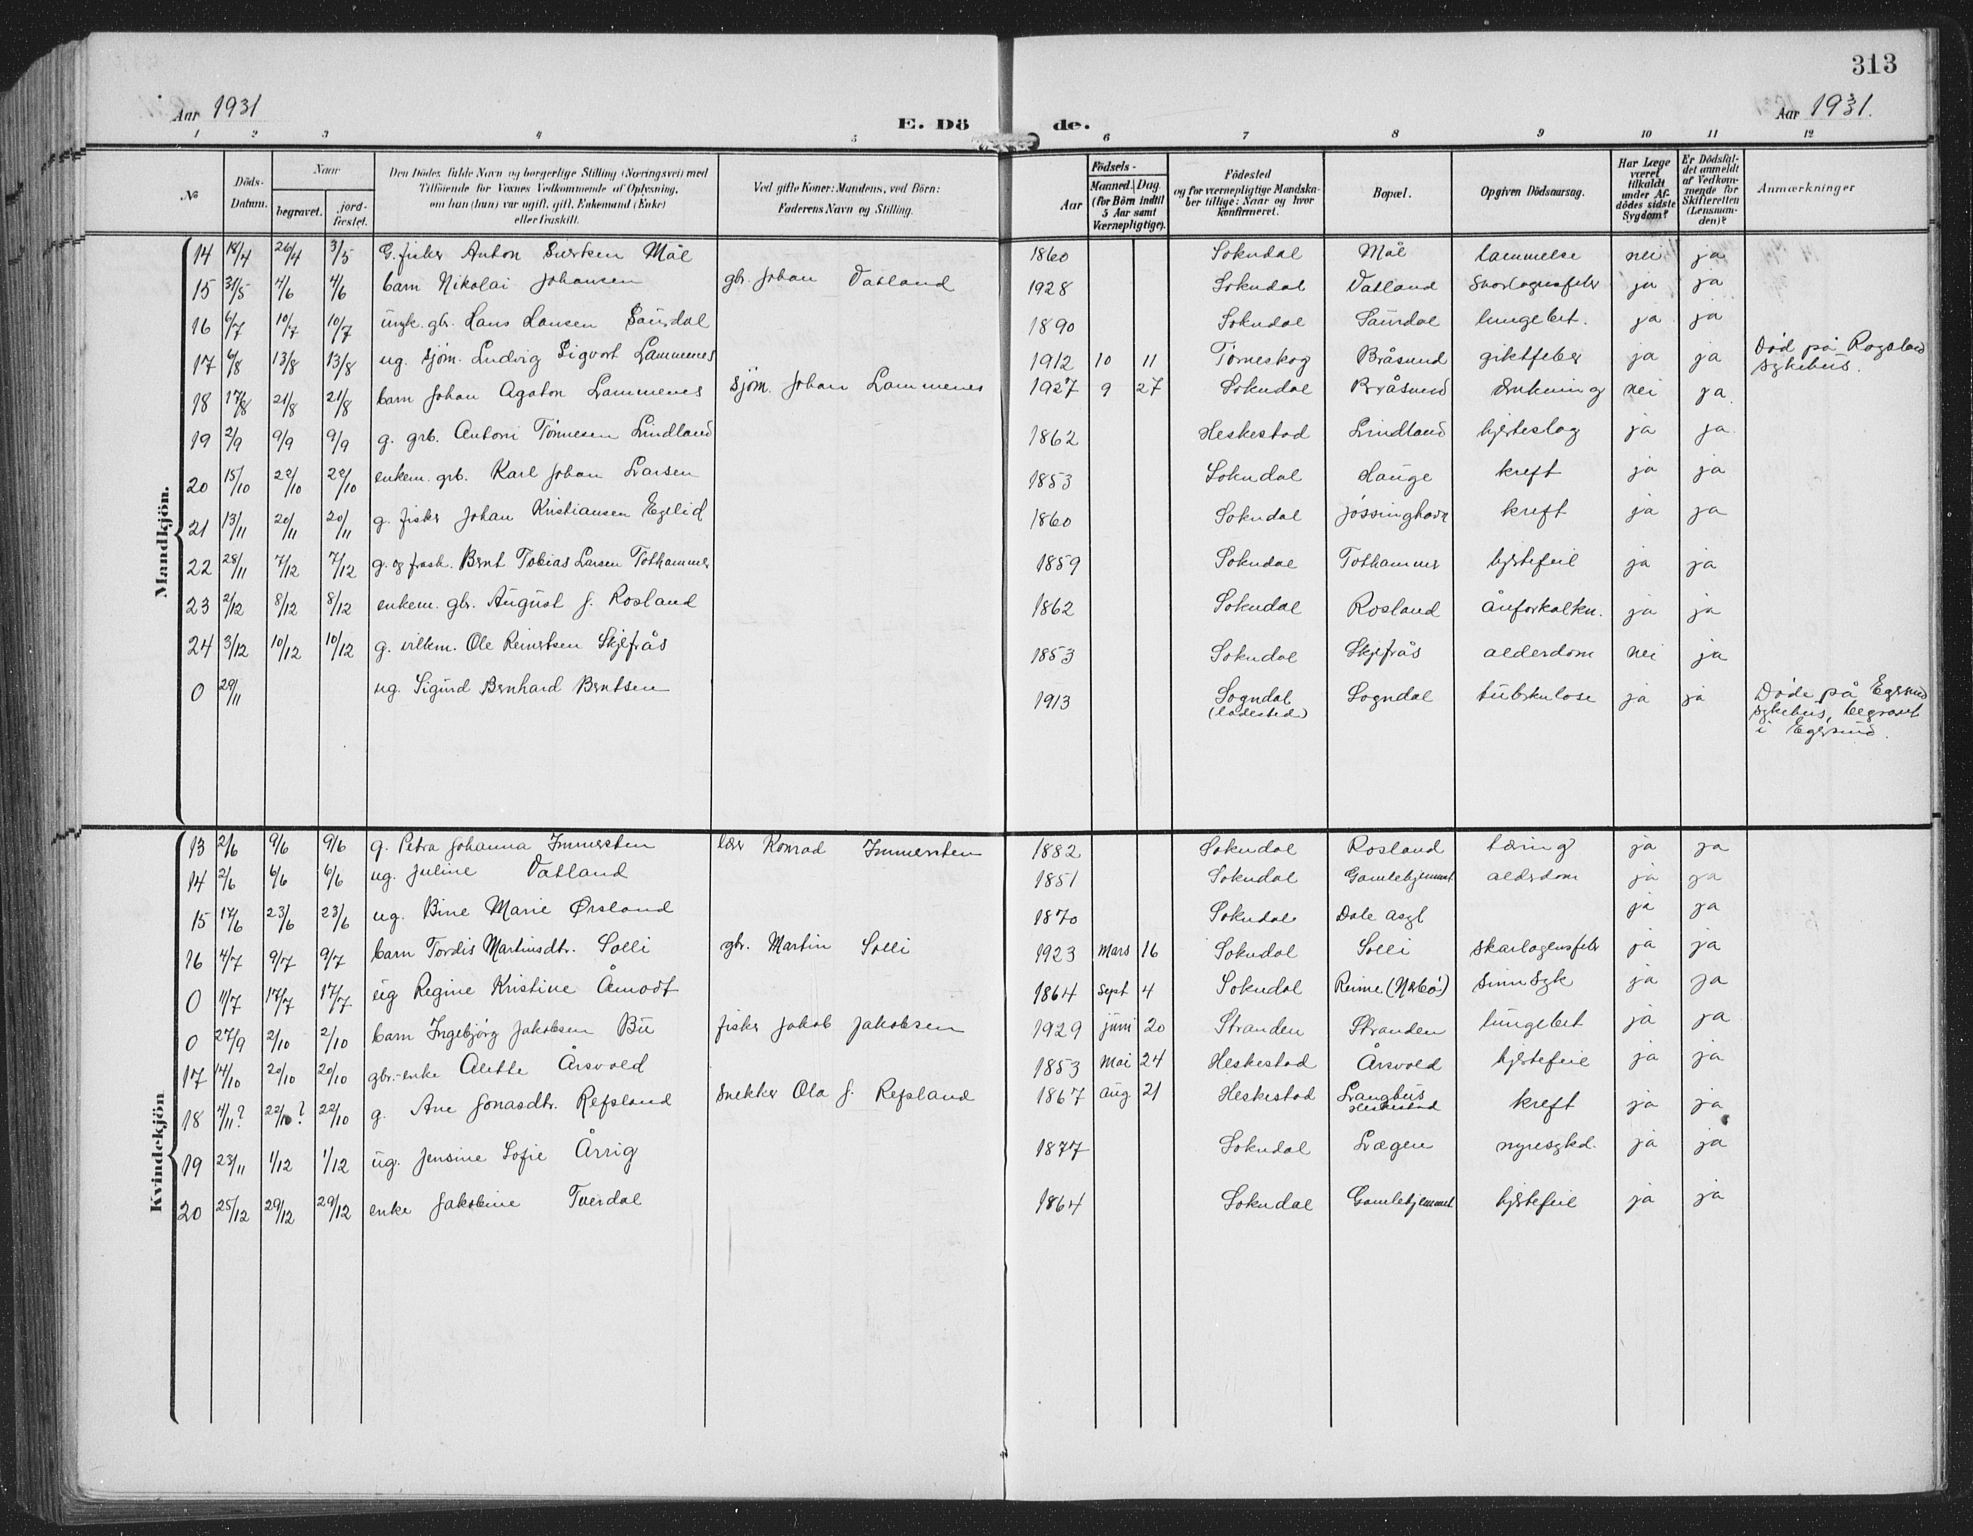 313
Aar 1931
E. Dö de.
Aar 1931.
1 2 3 4 5 6 7 8 9 10 11 12
№ Döds-Datum. Naar begravet. jord-fæstet. Den Dödes fulde Navn og borgerlige Stilling (Næringsvei) med Tilföiende for Voxnes Vedkommende af Oplysning, om han (hun) var ugift, gift, Enkemand (Enke) eller fraskilt. Ved gifte Koner: Mandens, ved Börn: Faderens Navn og Stilling. Aar Födsels- Maaned. Dag (for Börn indtil 5 Aar samt Værnepligtige). Födested og for værnepligtige Mandskaber tillige: Naar og hvor konfirmeret. Bopæl. Opgiven Dödsaarsag. Har Læge været tilkaldt under Afdödes sidste Sygdom? Er Dödsfaldet anmeldt af Vedkommende for Skifteretten (Lensmanden)? Anmærkninger
Mandkjön.
14 18/4 26/4 3/5 G. fisker Anton Mål 1860 Sokndal Mål lammelse nei ja
15 31/5 4/6 4/6 barn Nikolai Johansen gbr. Johan Vatland 1928 Sokndal Vatland ja ja
16 6/7 10/7 10/7 ungk. gbr. Hans Hansen Saurdal 1890 Sokndal Saurdal lungebet. ja ja
17 6/8 13/8 13/8 ug. sjøm. Ludvig Sigvort Lammenes 1912 10 11 Torneskog Bråsund giktfeber ja ja Död på Rogaland sykehus.
18 17/8 21/8 21/8 barn Johan Agaton Lammenes sjøm. Johan Lammenes 1927 9 27 Sokndal Bråsund drukning nei ja
19 2/9 9/9 9/9 g. grb. Antoni Tönnesen Lindland 1862 Heskestad Lindland hjerteslag ja ja
20 15/10 22/10 22/10 enkem. grb. Karl Johan Larsen 1853 Sokndal Hauge kreft ja ja
21 13/11 20/11 20/11 g. fisker Johan Kristiansen Egelid 1860 Sokndal Jøssinghavn kreft ja ja
22 28/11 7/12 7/12 g. og frask. Bernt Tobias Larsen Tothammer 1859 Sokndal Tothammer hjertefeil ja ja
23 2/12 8/12 8/12 enkem. gbr. August J. Rosland 1862 Sokndal Rosland åreforkalkn. ja ja
24 3/12 10/12 10/12 g. Ole Reinertsen Skjefrås 1853 Sokndal Skjefrås alderdom nei ja
0 29/11 ug. Sigurd Bernhard Berntsen 1913 Sogndal (ladested) Sogndal tuberkulose ja ja Døde på Egersund sykehus, begravet i Egersund.
Kvindekjön
13 2/6 9/6 9/6 g. Petra Johanna Immersten lærer Konrad Immersten 1882 Sokndal Rosland tæring ja ja
14 2/6 6/6 6/6 ug. Juline Vatland 1851 Sokndal Gamlehjemmet alderdom ja ja
15 17/6 23/6 23/6 ug. Bine Marie Ørsland 1870 Sokndal Dale asyl ja ja
16 4/7 9/7 9/7 barn Tordis Martinsdtr. Solli gbr. Martin Solli 1923 Mars 16 Sokndal Solli skarlagensfeber ja ja
0 11/7 17/7 17/7 ug Regine Kristine Åmodt 1864 sept 4 Sokndal Reime (Nærbö) sinnsyk ja ja
0 27/9 2/10 2/10 barn Ingebjørg Jakobsen Bu fisker Jakob Jakobsen 1929 juni 20 Stranden Stranden lungebet ja ja
17 14/10 20/10 20/10 gbr.-enke Alette Årsvold 1853 Mai 24 Heskestad Årsvold hjertefeil ja ja
18 4/11? 22/10? 22/10 g. Ane Jonasdtr. Refsland snekker Ola J. Refsland 1867 aug 21 Heskestad Langhus Heskestad kreft ja ja
19 23/11 1/12 1/12 ug. Jensine Sofie Årrig 1877 Sokndal Lægen nyresykd. ja ja
20 25/12 29/12 29/12 enke Jakobine Tverdal 1864 Sokndal Gamlehjemmet hjertefeil ja ja